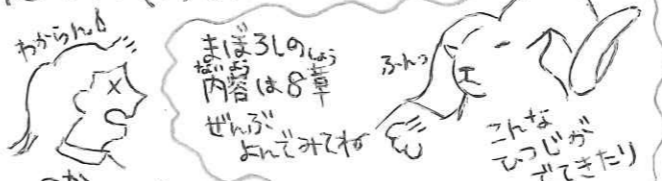 わからん
まぼろしの
内容は8章
ぜんぶ
よんでみてね
ふんっ
こんな
ひつじが
でてきたり